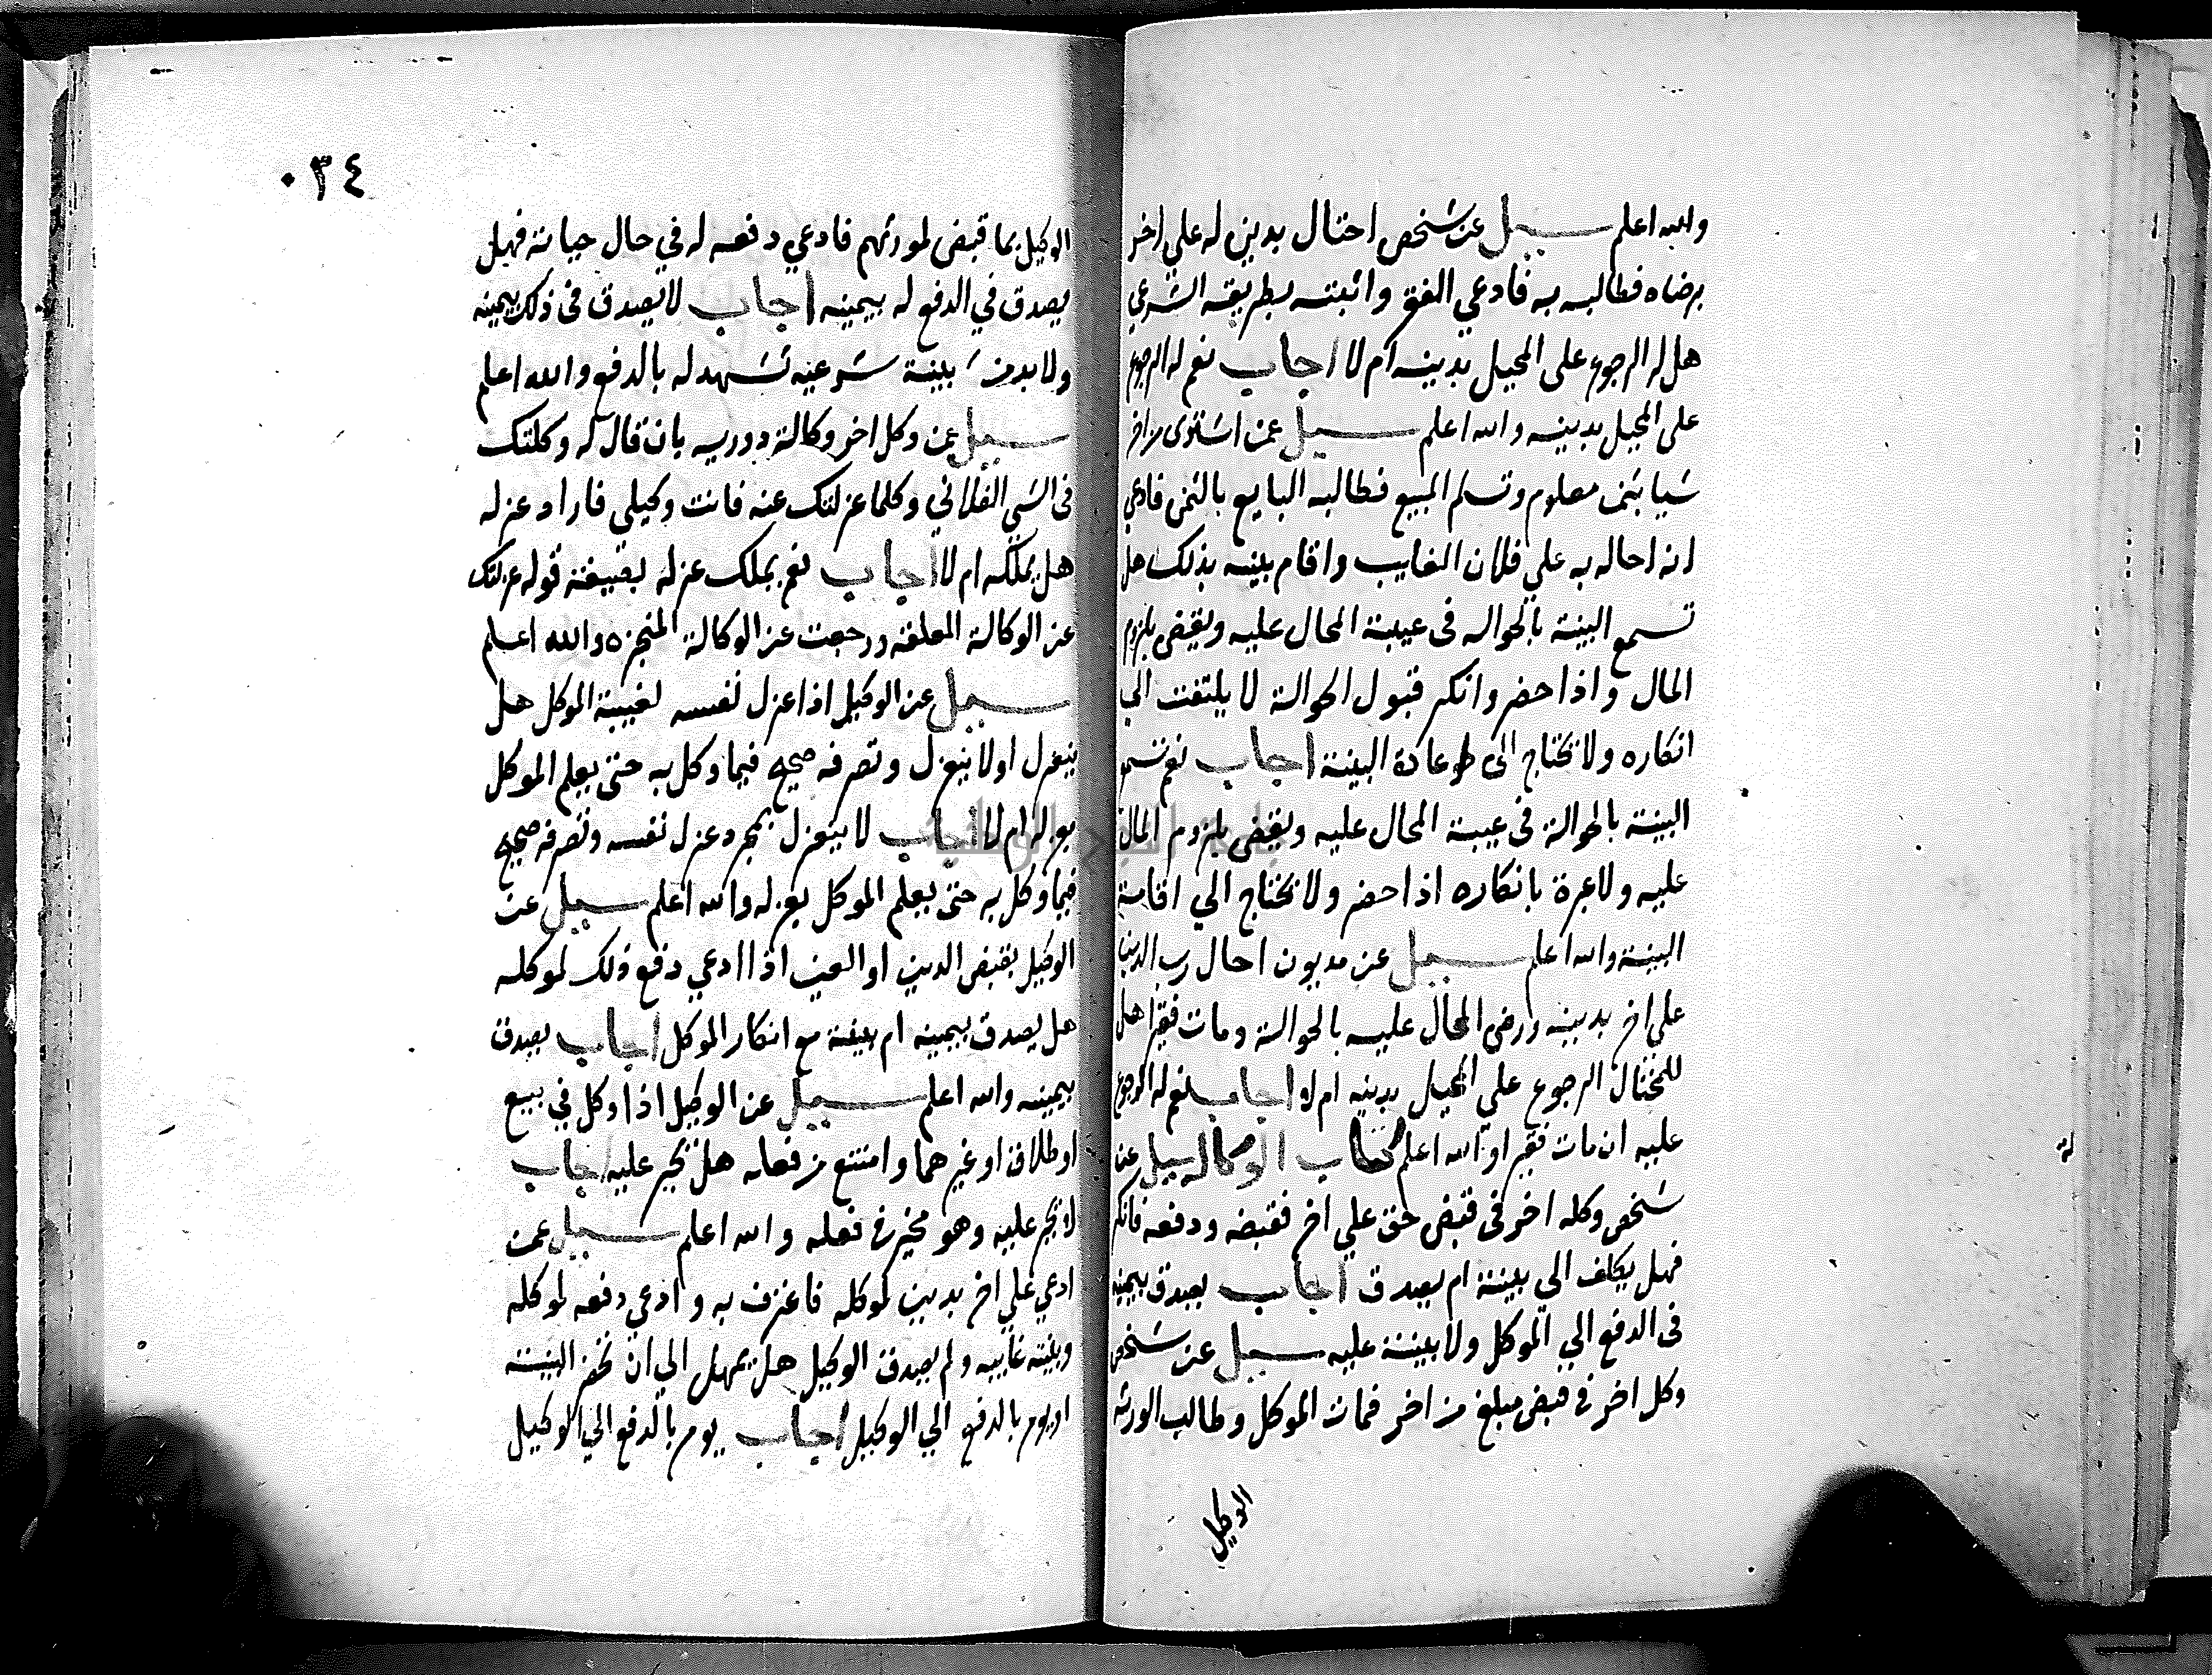 والله اعلم سيل عن شخص احتال بدين له علي اخر
برضاه فطالبه به فادعي الفقر واثبته بطريقه الشرعي
هل له الرجوع على المحيل بدينه ام لا اجاب نعم له الرجوع
على المحيل بدينه والله اعلم سيل عمن اشترى من اخر
شيا بثمن معلوم وتسلم المبيع فطالبه البايع بالثمن فادعي
انه احاله به علي فلان الغايب واقام بينه بذلك هل
تسمع البينة بالحواله في غيبة المحال عليه ويقضى بلزوم
المال واذا حضر وانكر قبول الحوالة لا يلتفت الي
انكاره ولا نحتاج الى اعادة البينة اجاب نعم تسمع
البينة بالحوالة في غيبة المحال عليه ويقضى بلزوم المال
عليه ولا عبرة بانكاره اذا حضر ولا نحتاج الي اقامة
البينة والله اعلم سيل عن مديون احال رب الدين
على اخر بدينه ورضى المحال عليه بالحوالة ومات فقيرا هل
للمحتال الرجوع علي المحيل بدينه ام لا اجاب نعم له الرجوع
عليه ان مات فقيرا والله اعلم كتاب الوكاله سيل عن
شخص وكله اخر في قبض حق علي اخر فقبضه ودفعه فانكر
فهل يكلف الي بينة ام يصدق اجاب يصدق بيمينه
في الدفع الي الموكل ولا بينة عليه سيل عن شخص
وكل اخر في قبض مبلغ من اخر فمات الموكل وطالب الورثه
الوكيل
٠٣٤
الوكيل بما قبض لمورثهم فادعي دفعه له في حال حياته فهل
يصدق في الدفع له بيمينه اجاب لا يصدق في ذلك بيمينه
ولا بد من بينة شرعيه تشهد له بالدفع والله اعلم
سيل عمن وكل اخر وكالة دوريه بان قال له وكلتك
في الشي الفلاني وكلما عزلتك عنه فانت وكيلي فاراد عزله
هل يملكه ام لا اجاب نعم يملك عزله بصيغة قوله عزلتك
عن الوكالة المعلقه ورجعت عن الوكالة المنجزه والله اعلم
سيل عن الوكيل اذا عزل نفسه لغيبة الموكل هل
ينعزل او لا ينعزل وتصرفه صحيح فيما وكل به حتى يعلم الموكل
بعزله ام لا اجاب لا ينعزل بمجرد عزل نفسه وتصرفه صحيح
فيما وكل به حتى يعلم الموكل بعزله والله اعلم سيل عن
الوكيل بقبض الدين او العين اذا ادعي دفع ذلك لموكله
هل يصدق بيمينه ام ببينة مع انكار الموكل اجاب يصدق
بيمينه والله اعلم سيل عن الوكيل اذا وكل في بيع
او طلاق او غيرهما وامتنع من فعله هل يجبر عليه اجاب
لا يجبر عليه وهو مخير في فعله والله اعلم سيل عمن
ادعي علي اخر بدين لموكله فاعترف به وادعي دفعه لموكله
وبينته غايبه ولم يصدق الوكيل هل يمهل الي ان تحضر البينة
او يومر بالدفع الي الوكيل اجاب يومر بالدفع الي الوكيل